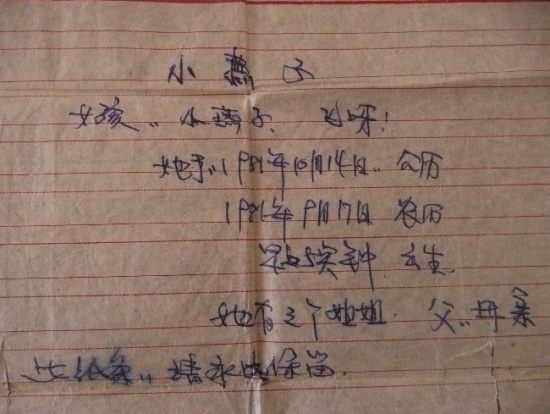 小燕子
女孩,, 小燕子、飞呀！
她于,, 1981年10月14日,, 公历
1981年9月17日 农历
5 钟 出生.
她有三个姐姐. 父,, 母亲
此纸条,, 请永远保留.